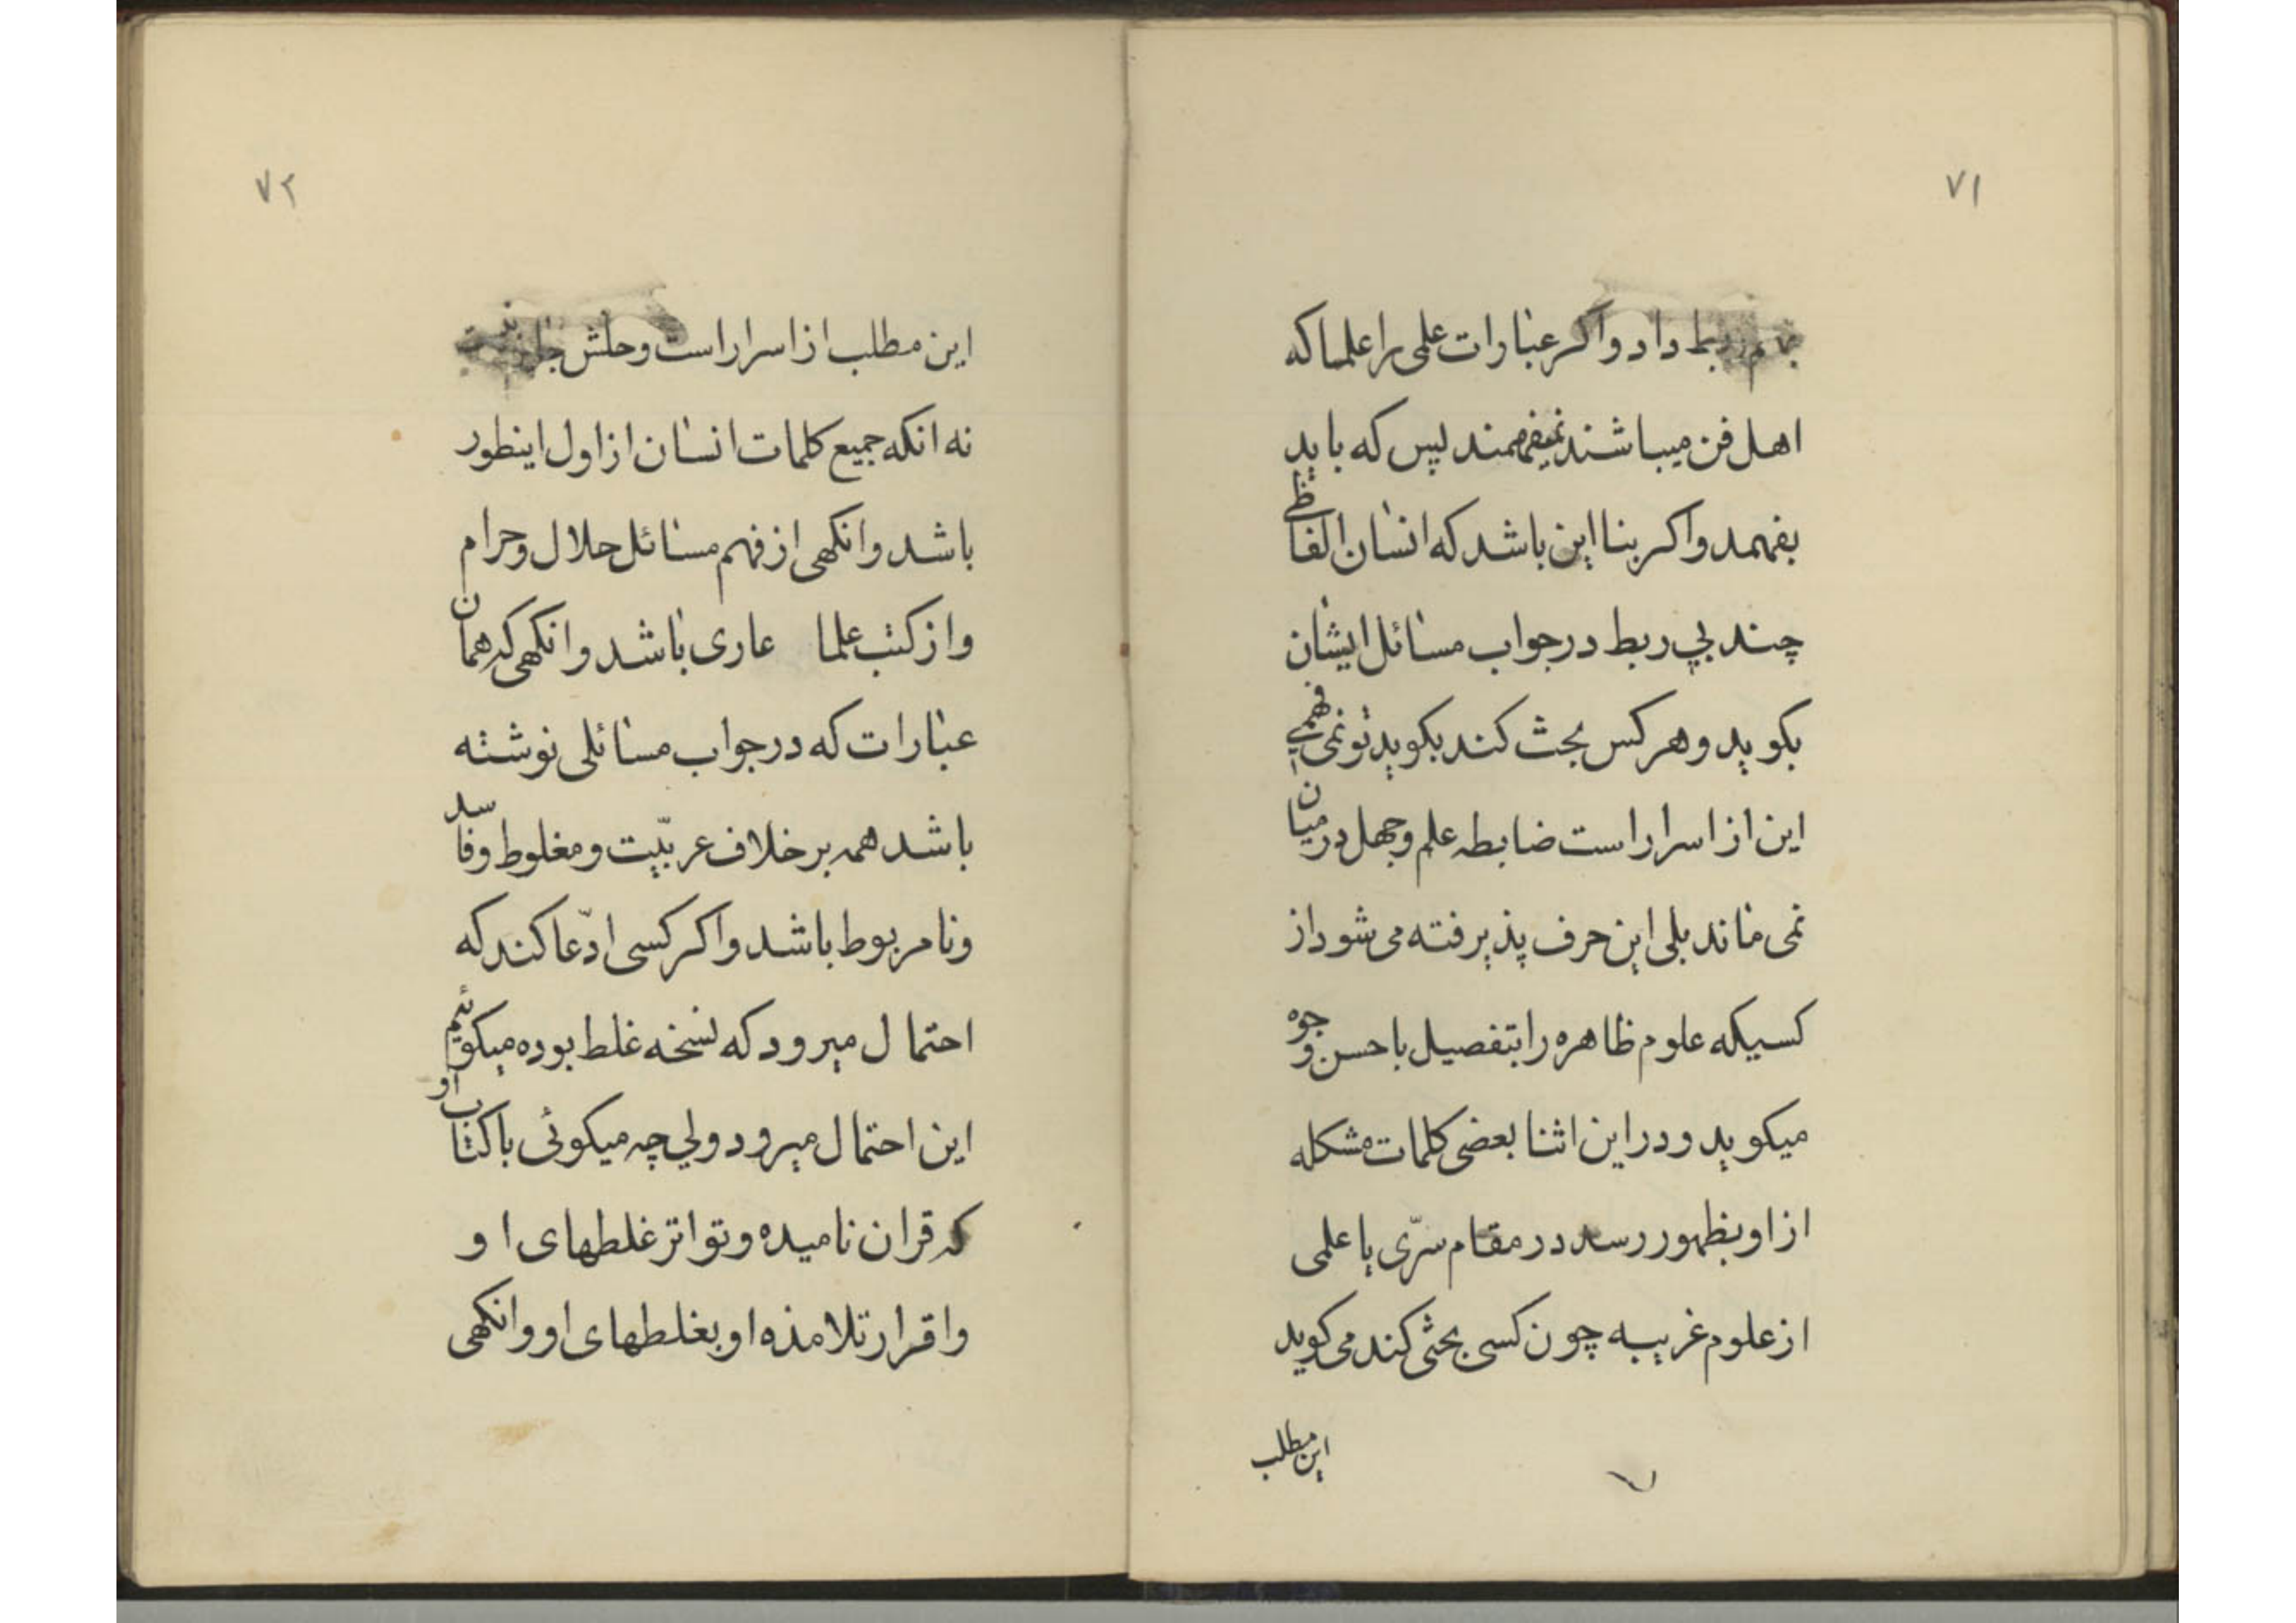 ۷۱
بهم ربط داد و اکر عبارات علمی را علما که
اهل فن میباشند نمیفهمند پس که باید
بفهمد و اکر بنا این باشد که انسان الفاظی
چند بی ربط در جواب مسائل ایشان
بکوید و هر کس بحث کند بکوید تو نمی فهمی
این از اسرار است ضابطه علم و جهل در میان
نمی ماند بلی این حرف پذیرفته می شود از
کسیکه علوم ظاهره را بتفصیل باحسن وجوه
میکوید و در این اثنا بعضی کلمات مشکله
از او بظهور رسد در مقام سرّی یا علمی
از علوم غریبه چون کسی بحثی کند می کوید
این مطلب
۷۲
این مطلب از اسرار است و حلش جایز نیست
نه انکه جمیع کلمات انسان از اول اینطور
باشد وانکهی از فهم مسائل حلال و حرام
و از کتب علما عاری باشد وانکهی که همان
عبارات که در جواب مسائلی نوشته
باشد همه بر خلاف عربیّت و مغلوط و فاسد
و نامربوط باشد و اکر کسی ادّعا کند که
احتمال میرود که نسخه غلط بوده میکوئیم
این احتمال میرود ولی چه میکوئی با کتاب او
که قران نامیده و تواتر غلطهای او
و اقرار تلامذه او بغلطهای او وانکهی